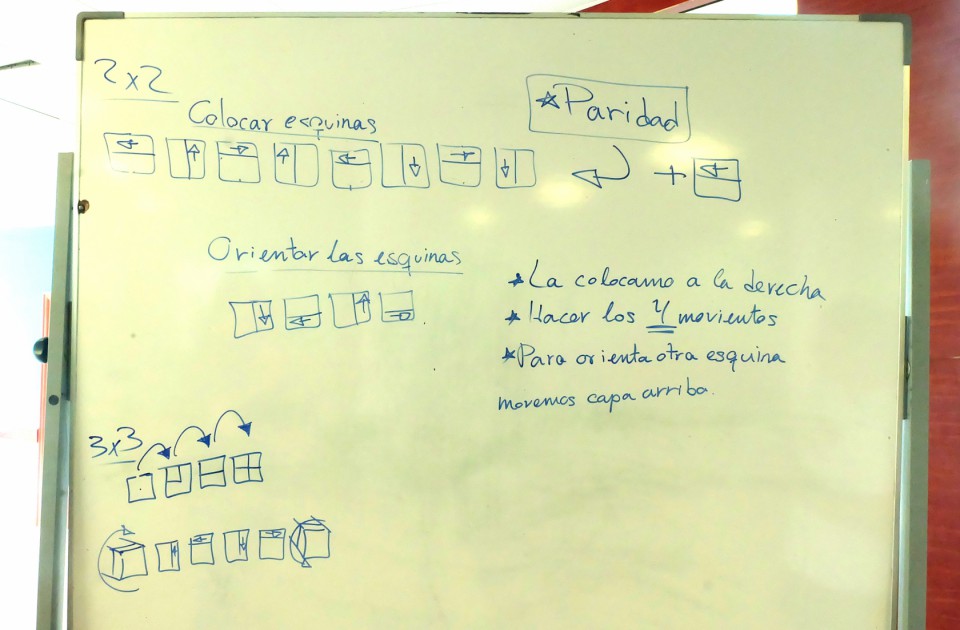 2x2
Colocar esquinas
★Paridad
+
Orientar las esquinas
★La colocamo a la derecha
★Hacer los 4 movientos
★Para orienta otra esquina
movemos capa arriba.
3x3